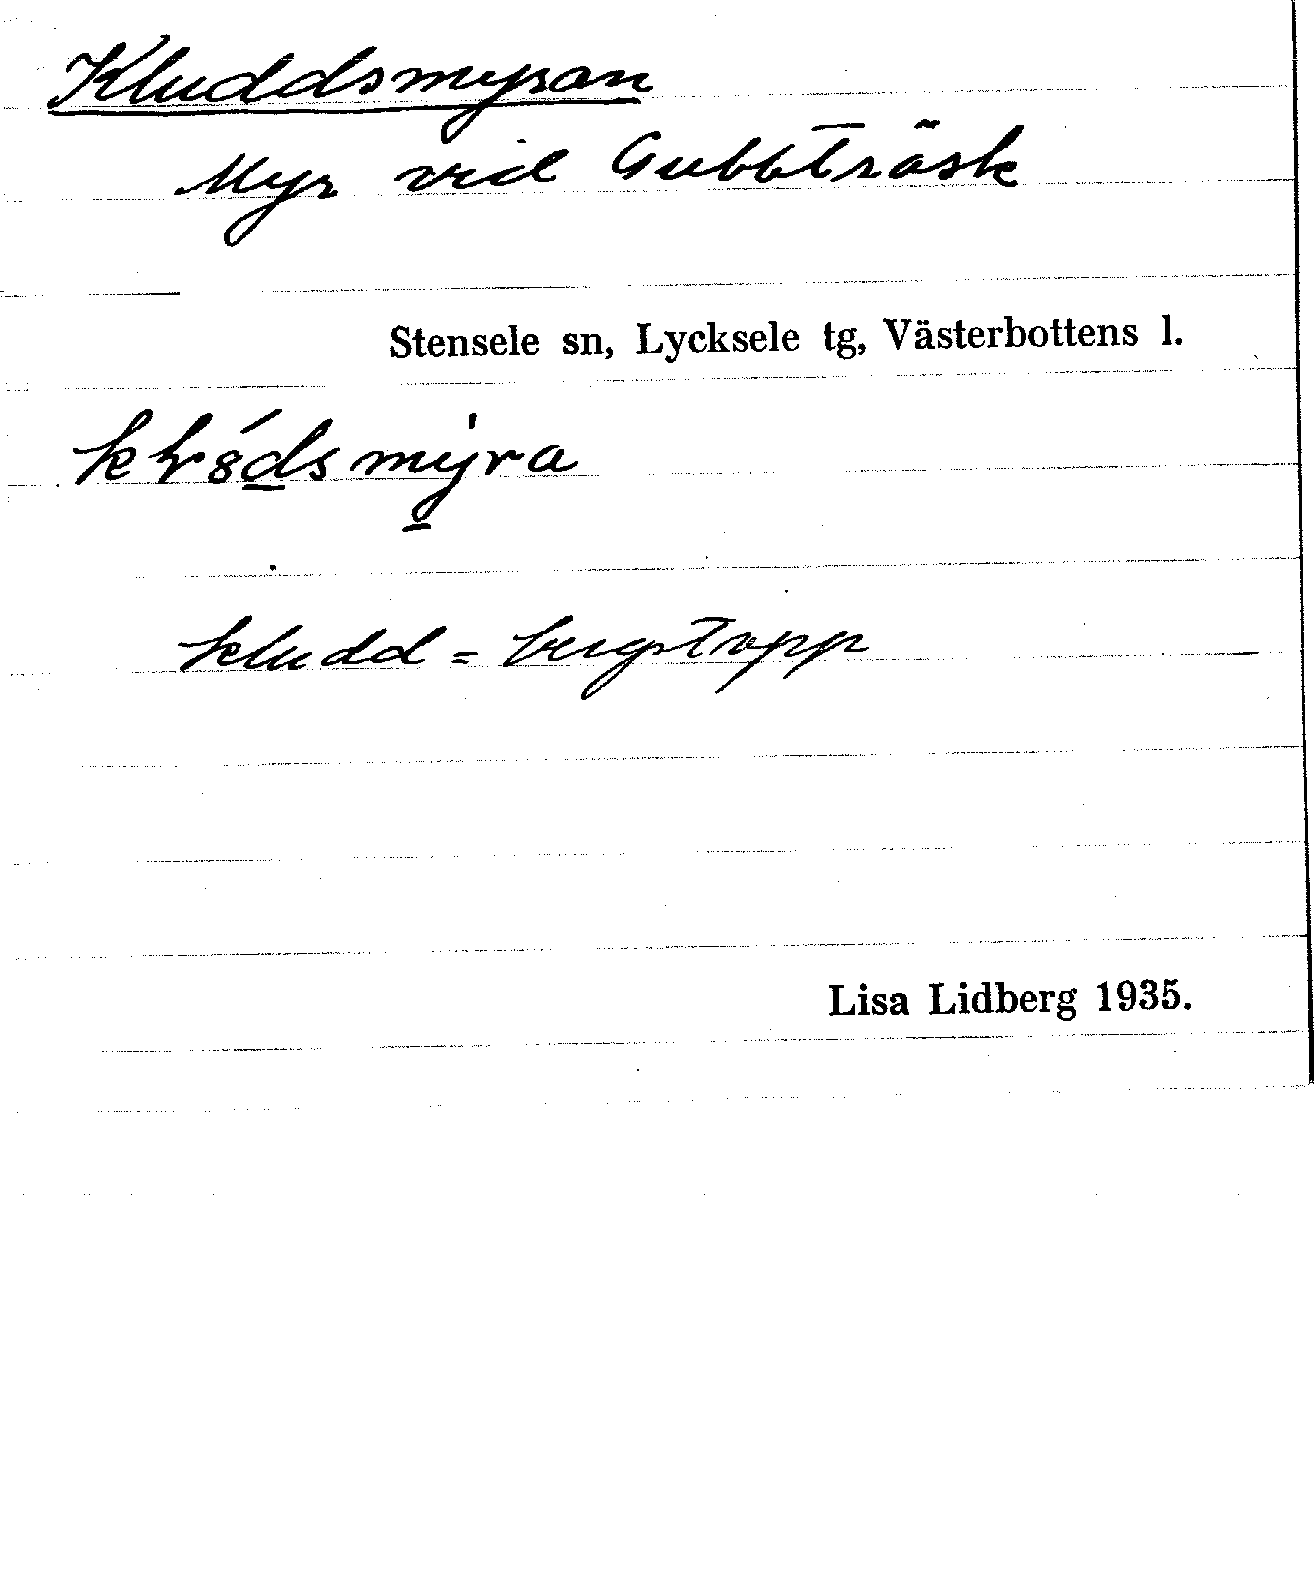 Kluddsmyran
Myr vid Gubbträsk
Stensele sn, Lycksele tg, Västerbottens l.
kludd = bergstopp
Lisa Lidberg 1935.